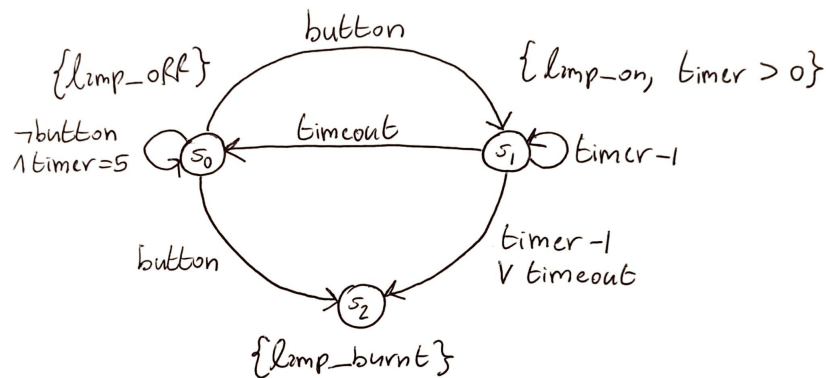 button
{lamp_off}
{lamp_on, timer > 0}
¬button
∧ timer=5
s0
timeout
s1
timer-1
button
timer-1
∨ timeout
s2
{lamp_burnt}